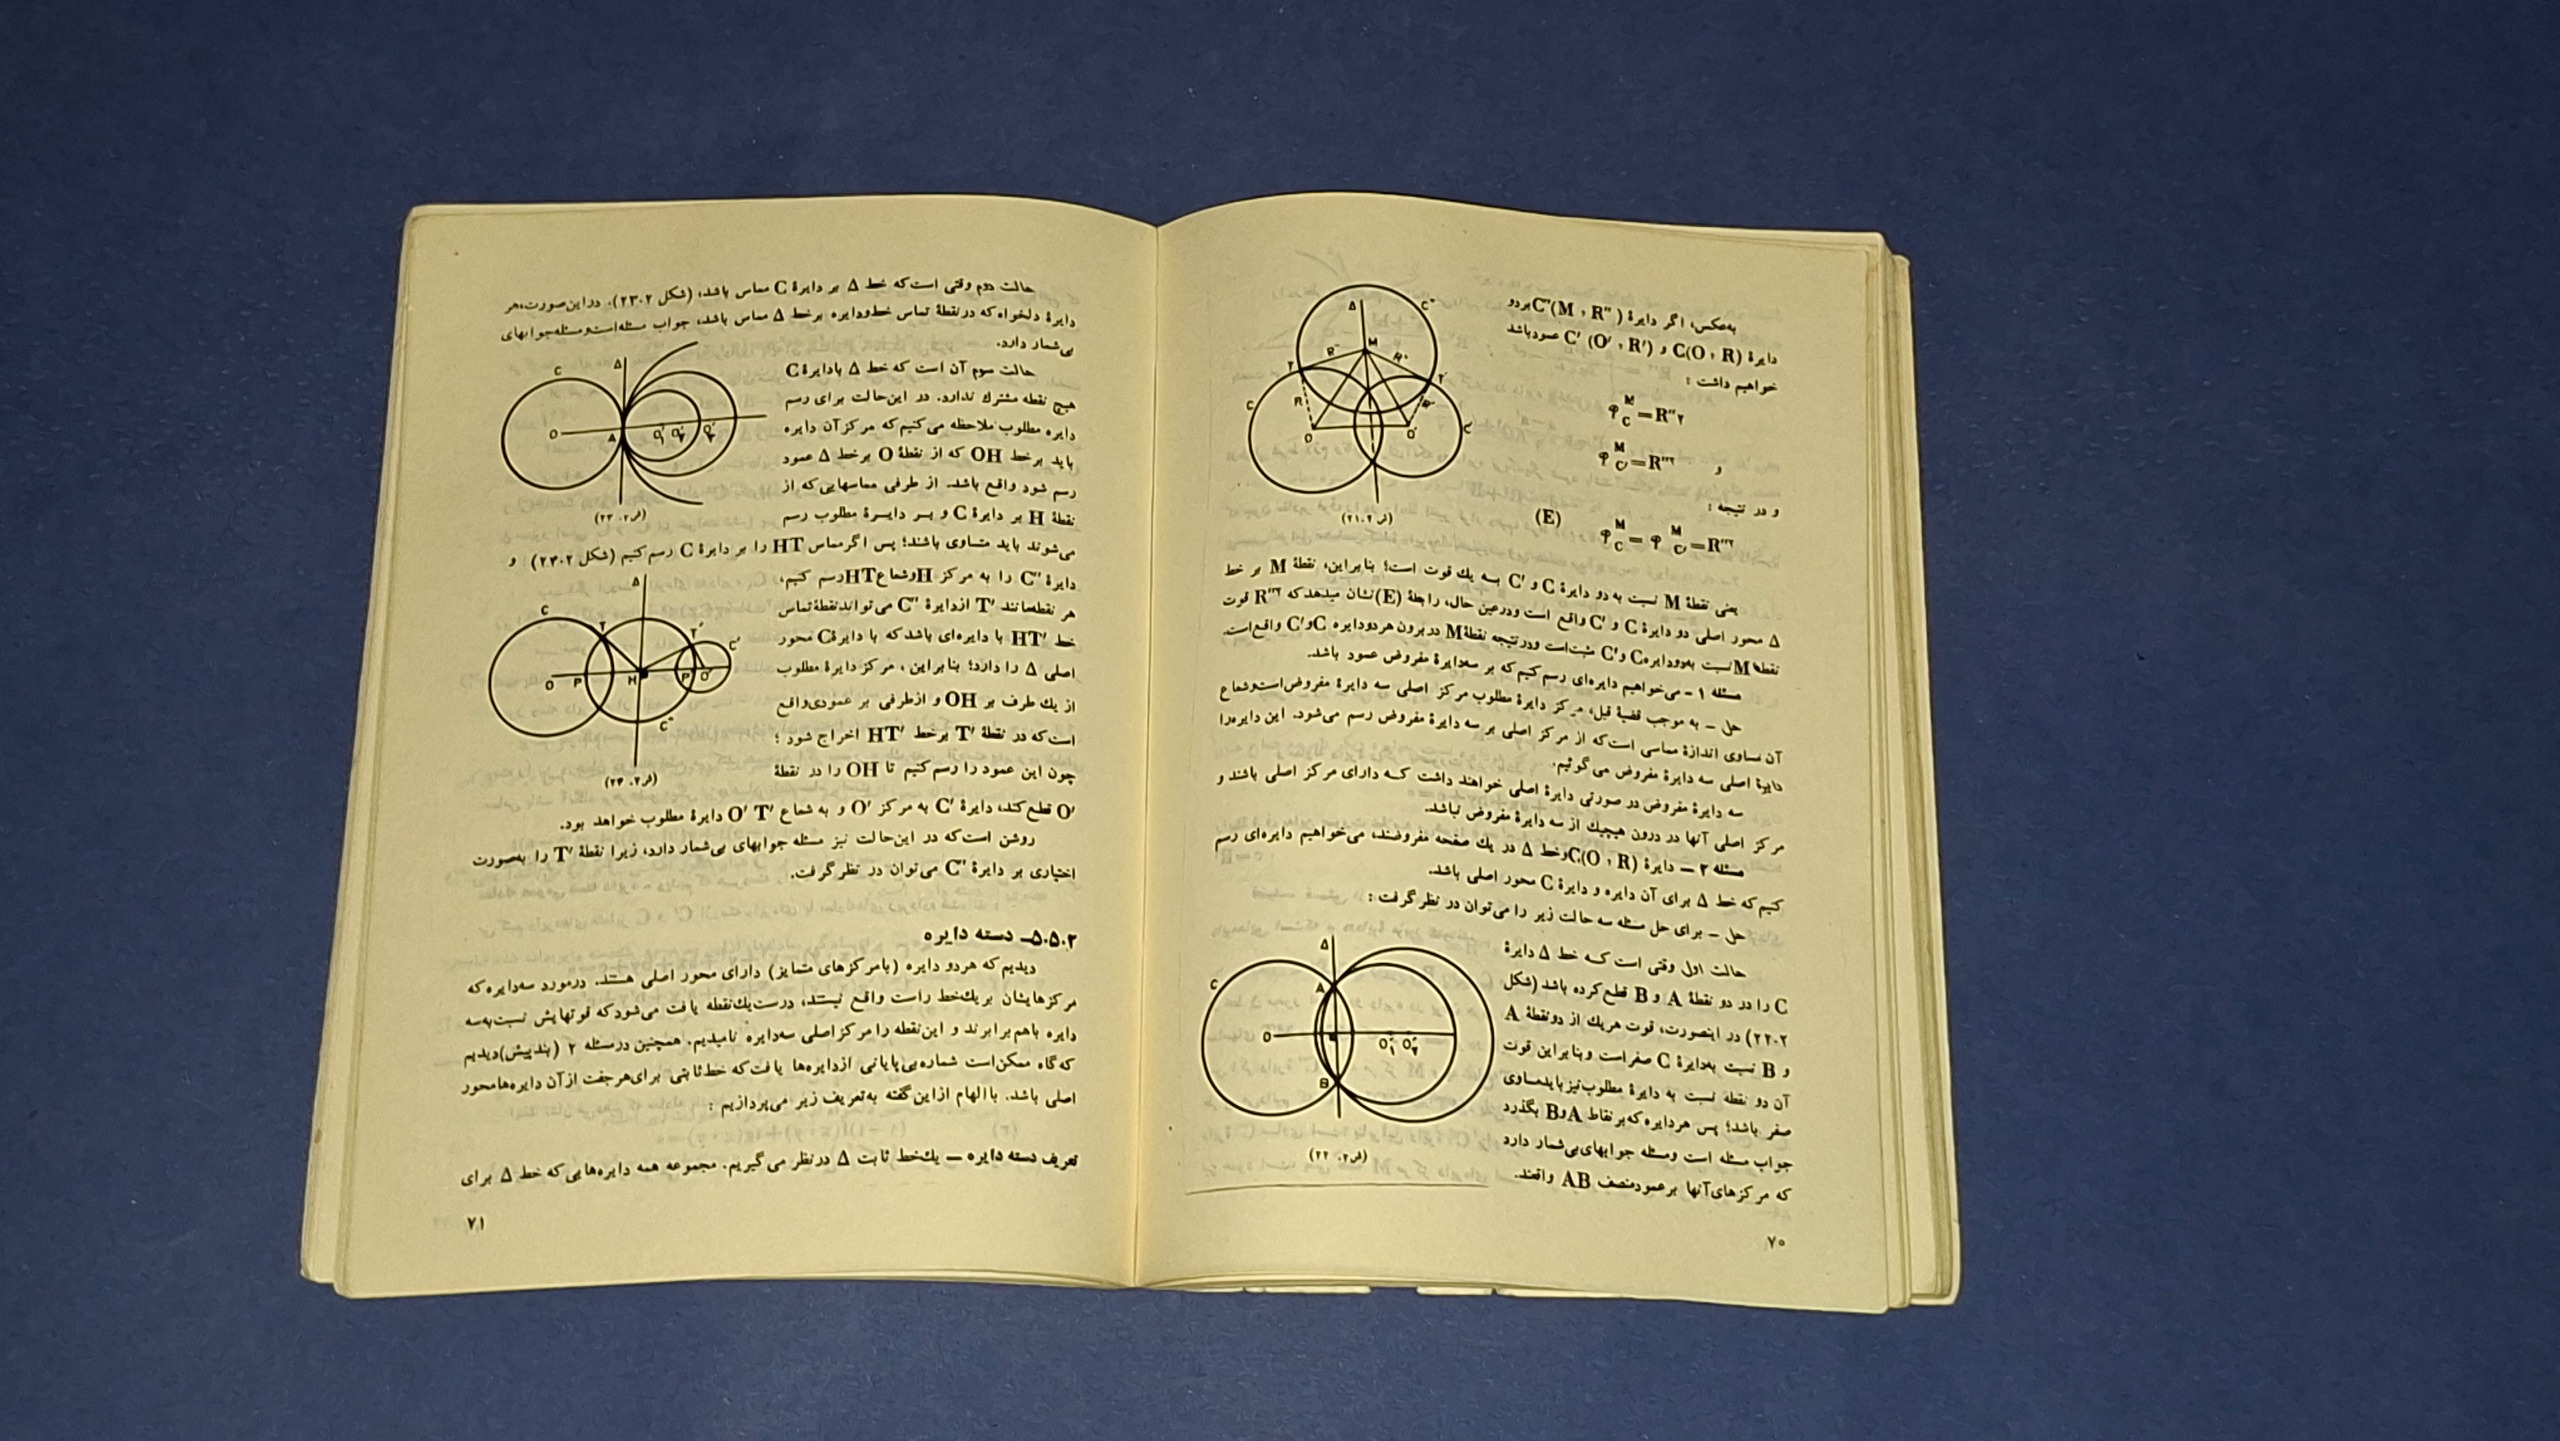 به‌عکس، اگر دایرهٔ C″(M , R″) بر دو
دایرهٔ C(O , R) و C′ (O′ , R′) عمود باشد
خواهیم داشت :
M
𝒫 = R″۲
C
M
و 𝒫 = R″۲
C′
و در نتیجه :
M M
(E) 𝒫 = 𝒫 = R″۲
C C′
Δ C″ M R″ R″ T T′ C R R′ C′ O O′
(فر۲۱.۲)
یعنی نقطهٔ M نسبت به دو دایرهٔ C و C′ به یك قوت است؛ بنابراین، نقطهٔ M بر خط
Δ محور اصلی دو دایرهٔ C و C′ واقع است ودرعین حال، رابطهٔ (E) نشان میدهد که R″۲ قوت
نقطهٔ M نسبت به‌دودایرهC و C′ مثبت‌است ودرنتیجه نقطهٔM دربرون هردودایره C و C′ واقع‌است.
مسئله ۱ - می‌خواهیم دایره‌ای رسم کنیم که بر سه‌دایرهٔ مفروض عمود باشد.
حل - به موجب قضیهٔ قبل، مرکز دایرهٔ مطلوب مرکز اصلی سه دایرهٔ مفروض‌است‌وشعاع
آن مساوی اندازهٔ مماسی است‌که از مرکز اصلی بر سه دایرهٔ مفروض رسم می‌شود. این دایره‌را
دایرهٔ اصلی سه دایرهٔ مفروض می گوئیم.
سه دایرهٔ مفروض در صورتی دایرهٔ اصلی خواهند داشت کــه دارای مرکز اصلی باشند و
مرکز اصلی آنها در درون هیچیك از سه دایرهٔ مفروض نباشد.
مسئله ۲ — دایرهٔ C(O , R) وخط Δ در یك صفحه مفروضند، می‌خواهیم دایره‌ای رسم
کنیم که خط Δ برای آن دایره و دایرهٔ C محور اصلی باشد.
حل - برای حل مسئله سه حالت زیر را می‌توان در نظر گرفت :
حالت اول وقتی است کــه خط Δ دایرهٔ
C را در دو نقطهٔ A و B قطع کرده باشد (شکل
۲۲.۲) در اینصورت، قوت هریك از دونقطهٔ A
و B نسبت به‌دایرهٔ C صفراست وبنابراین قوت
آن دو نقطه نسبت به دایرهٔ مطلوب‌نیز بایدمساوی
صفر باشد؛ پس هردایره‌که برنقاط A و B بگذرد
جواب مسئله است ومسئله جوابهای‌بی‌شمار دارد
که مرکزهای‌آنها برعمودمنصف AB واقعند.
Δ C A O O′۱ O′۲ B
(فر۲. ۲۲)
۷۰
حالت دوم وقتی است‌که خط Δ بر دایرهٔ C مماس باشد، (شکل ۲۳.۲). دراین‌صورت،هر
دایرهٔ دلخواه‌که درنقطهٔ تماس خط‌ودایره برخط Δ مماس باشد، جواب مسئله‌است‌ومسئله‌جوابهای
بی‌شمار دارد.
حالت سوم آن است که خط Δ بادایرهٔ C
هیچ نقطه مشترك ندارد. در این‌حالت برای رسم
دایره مطلوب ملاحظه می‌کنیم‌که مرکز آن دایره
باید برخط OH که از نقطهٔ O برخط Δ عمود
رسم شود واقع باشد. از طرفی مماسهایی‌که از
نقطهٔ H بر دایرهٔ C و بــر دایــرهٔ مطلوب رسم
Δ C O A O′۱ O′۲ O′۳
(فر۲. ۲۳)
می‌شوند باید متساوی باشند؛ پس اگرمماس HT را بر دایرهٔ C رسم کنیم (شکل ۲۳.۲) و
دایرهٔ C″ را به مرکز H وشعاع HT رسم کنیم،
هر نقطه‌مانند T′ ازدایرهٔ C″ می‌تواندنقطهٔ‌تماس
خط HT′ با دایره‌ای باشدکه با دایرهٔ C محور
اصلی Δ را دارد؛ بنابراین ، مرکز دایرهٔ مطلوب
از یك طرف بر OH و ازطرفی بر عمودی‌واقع
است‌که در نقطهٔ T′ برخط HT′ اخراج شود ؛
چون این عمود را رسم کنیم تا OH را در نقطهٔ
Δ C T T′ C′ O P H P′ O′ C″
(فر۲. ۲۳)
O′ قطع کند، دایرهٔ C′ به مرکز O′ و به شعاع O′ T′ دایرهٔ مطلوب خواهد بود.
روشن است‌که در این‌حالت نیز مسئله جوابهای بی‌شمار دارد، زیرا نقطهٔ T′ را به‌صورت
اختیاری بر دایرهٔ C″ می‌توان در نظر گرفت.
۵.۵.۲- دسته دایره
دیدیم که هردو دایره (بامرکزهای متمایز) دارای محور اصلی هستند. درمورد سه‌دایره‌که
مرکزهایشان بریك‌خط راست واقع نیستند، درست‌یك‌نقطه یافت می‌شودکه قوتهایش نسبت‌به‌سه
دایره باهم برابرند و این‌نقطه را مرکزاصلی سه‌دایره نامیدیم. همچنین درمسئله ۲ (بندپیش)دیدیم
که گاه ممکن‌است شماره‌بی‌پایانی ازدایره‌ها یافت‌که خط‌ثابتی برای‌هرجفت ازآن دایره‌هامحور
اصلی باشد. باالهام ازاین‌گفته به‌تعریف زیر می‌پردازیم :
تعریف دسته دایره — یك‌خط ثابت Δ درنظر می گیریم. مجموعه همه دایره‌هایی‌که خط Δ برای
۷۱